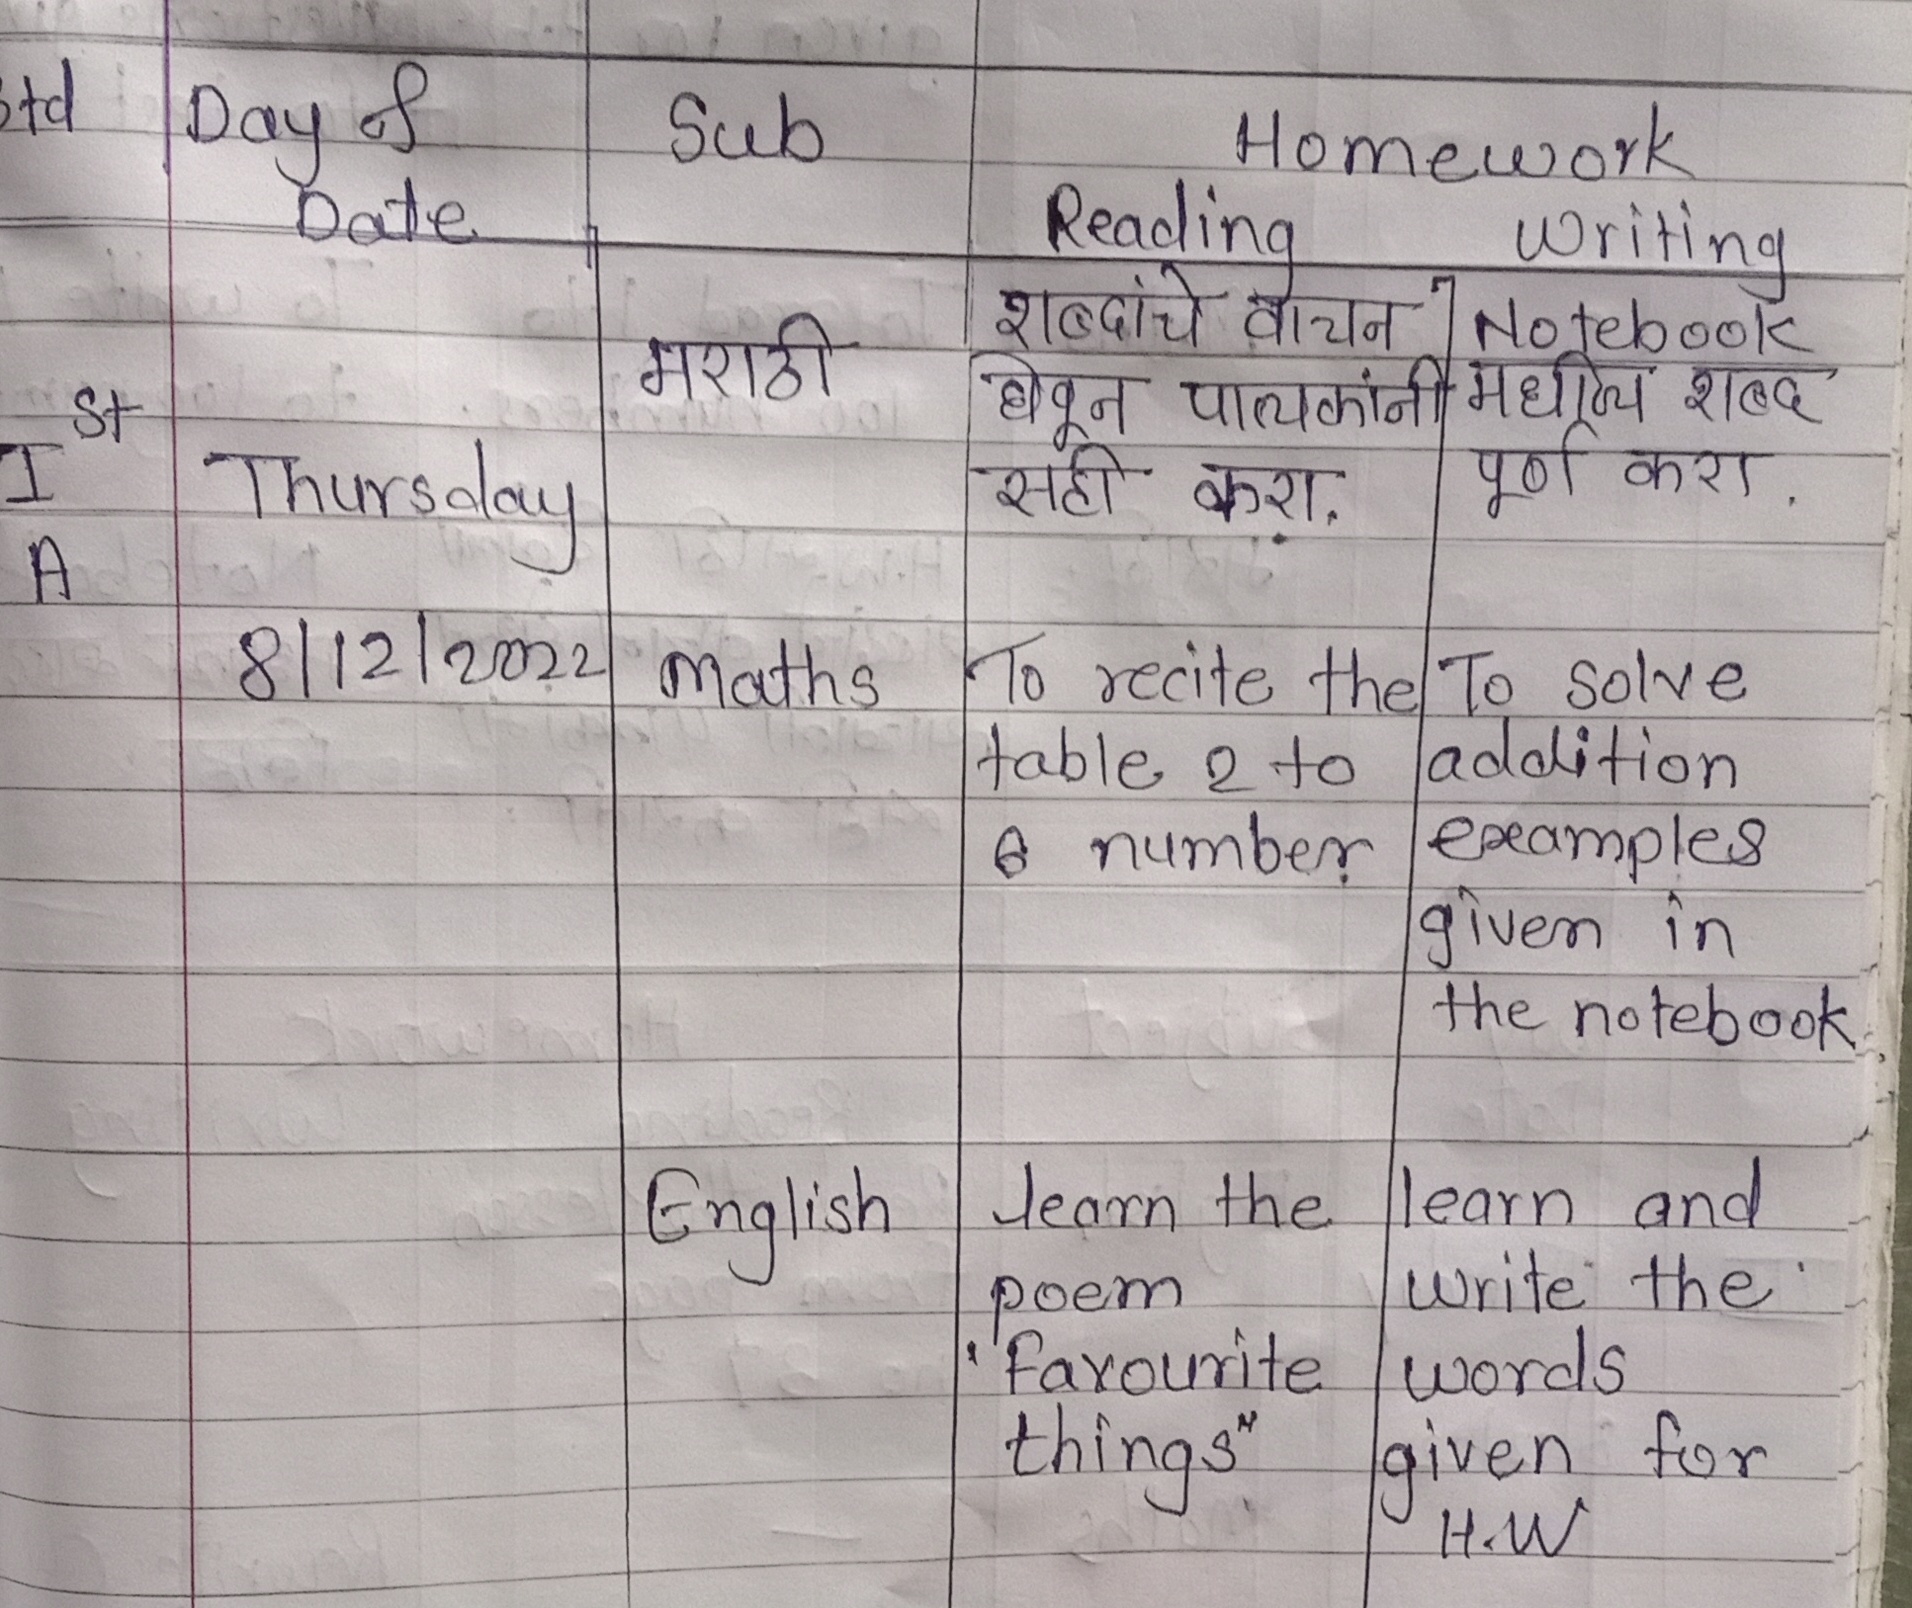 Std Day & Sub Homework
Date Reading Writing
मराठी शब्दांचे वाचन Notebook
घेवून पाल्यकांनी मधील शब्द
सही करा. पूर्ण करा.
Ist Thursday
A
8/12/2022 Maths To recite the To solve
table 2 to addition
6 number. examples
given in
the notebook.
English learn the learn and
poem write the
"favourite words
things" given for
H.W